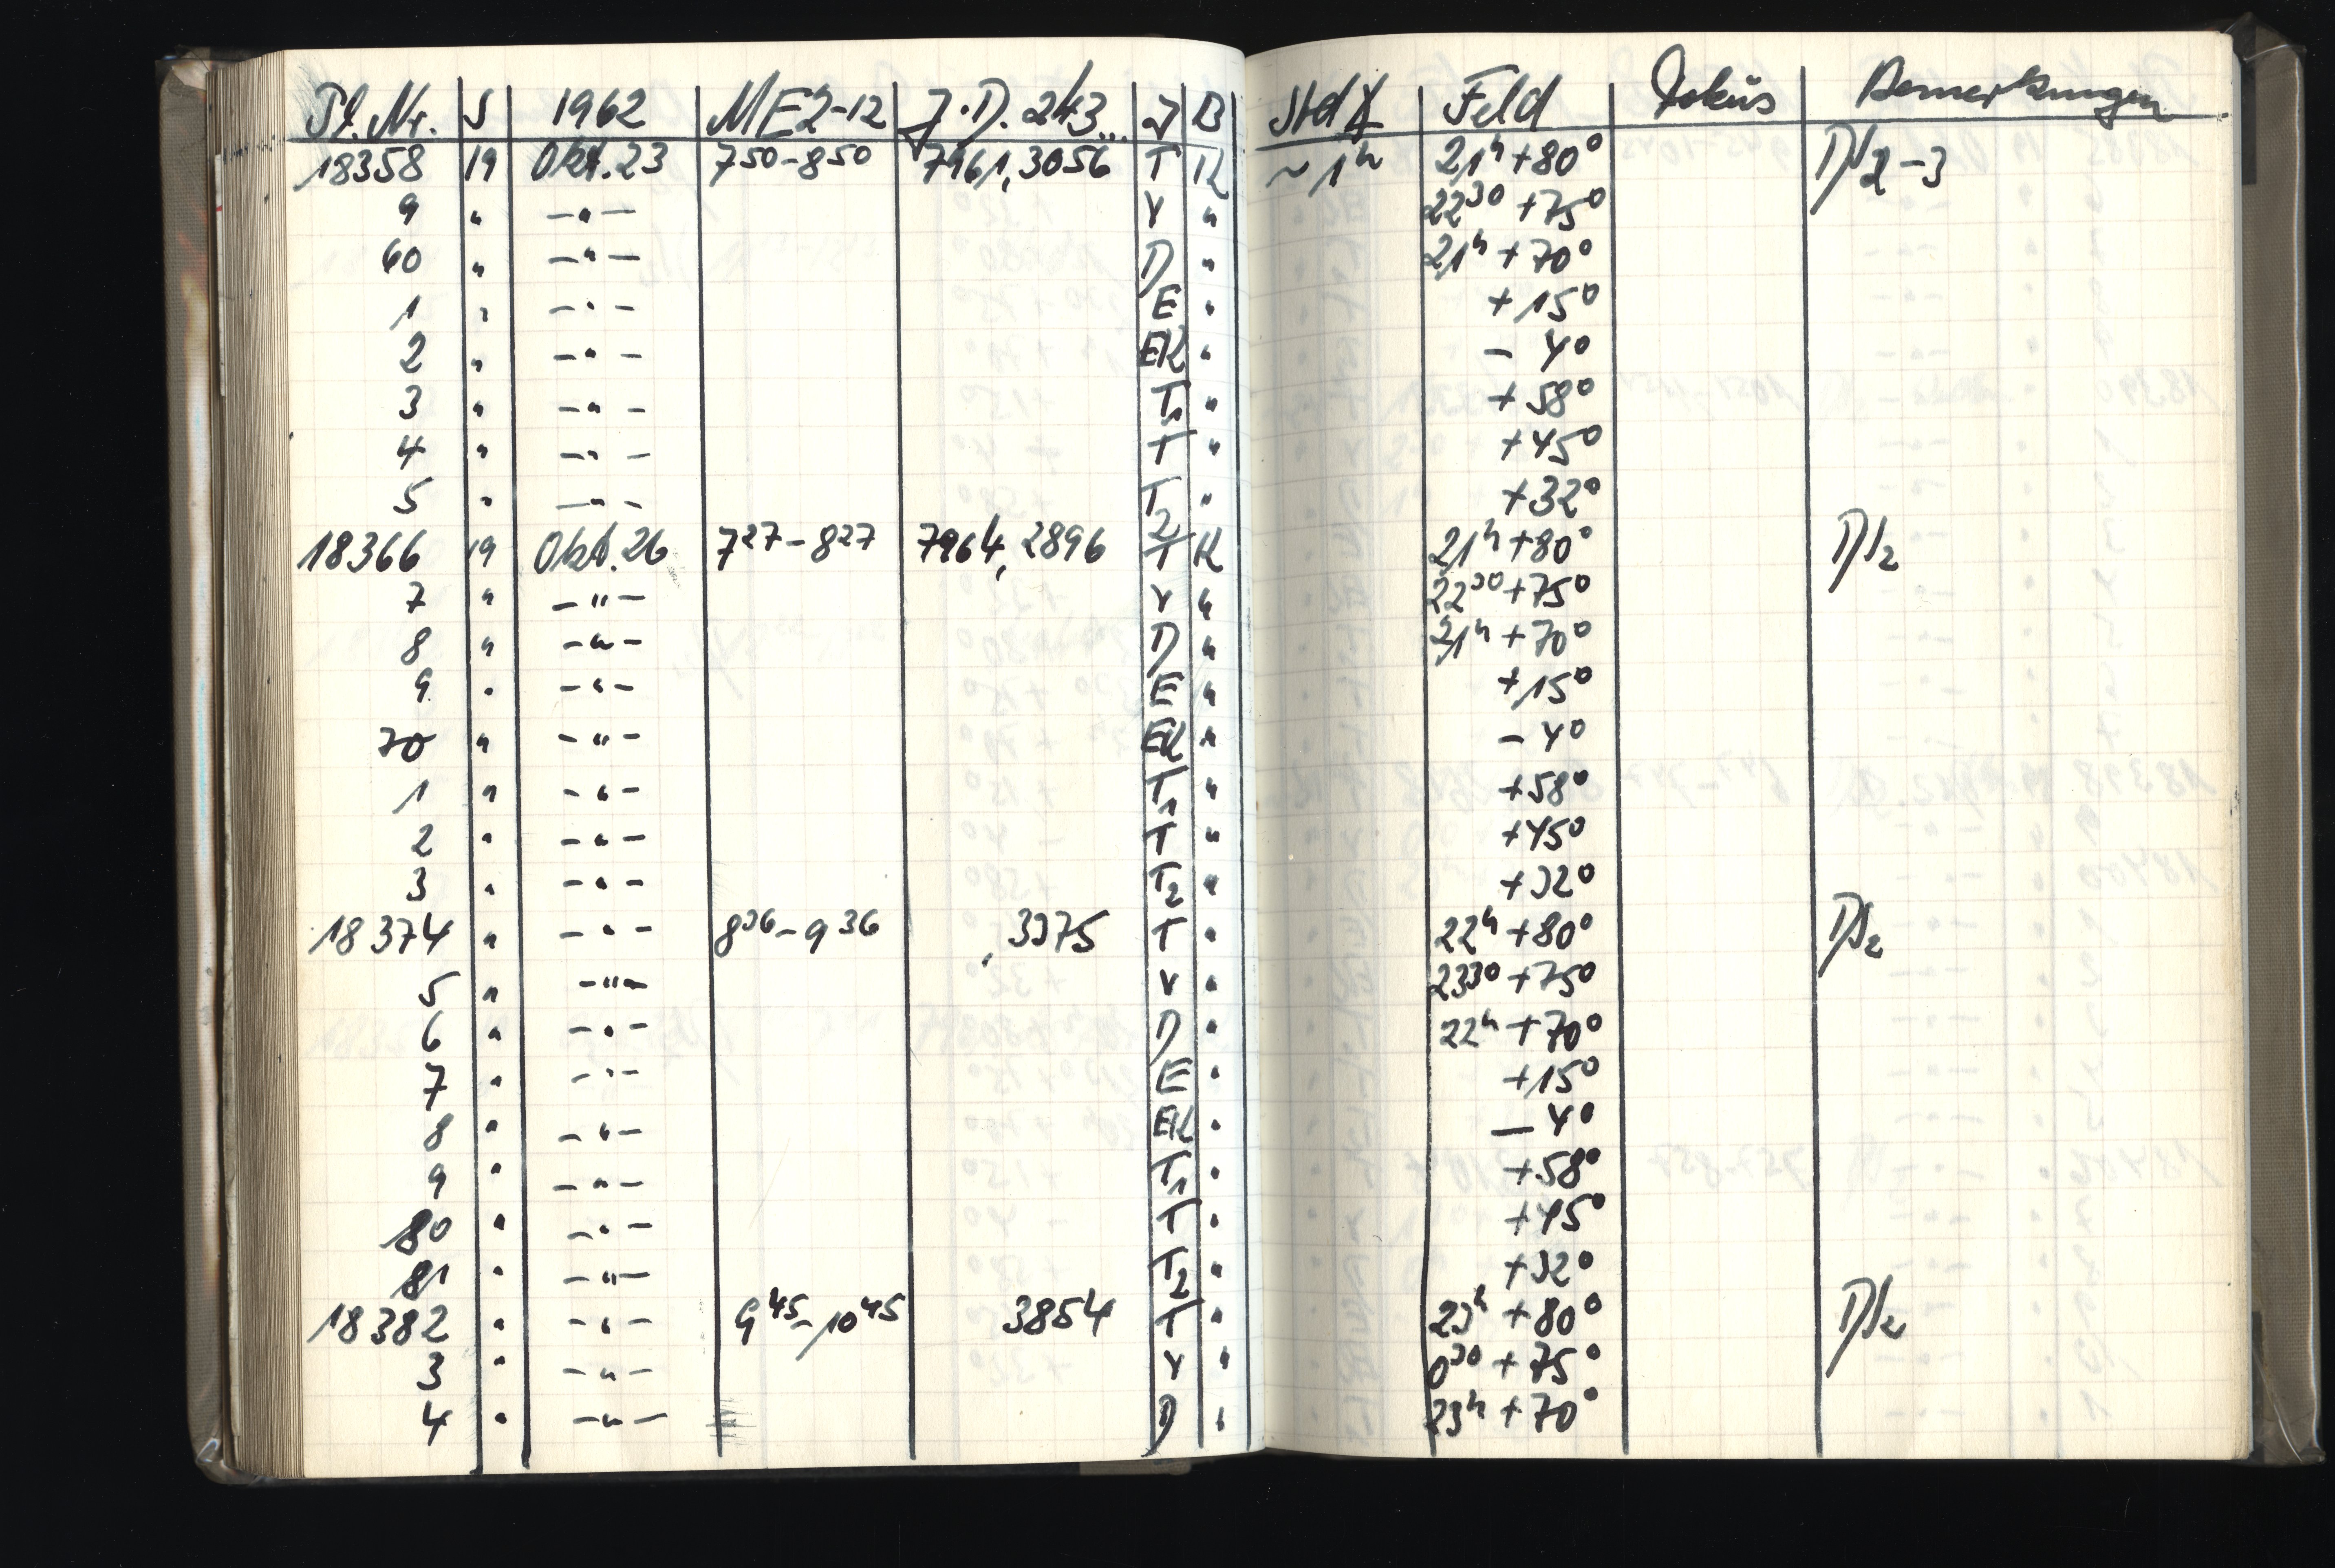 Pl. Nr. S 1962 MEZ-12 J.D. 243... J B Std ∢ Feld Fokus Bemerkungen
18358 19 Okt. 23 7 50 - 8 50 7961,3056 T K ~ 1h 21h +80° D/S2-3
9 " -"- V " 22 30 +75°
60 " -"- D " 21h +70°
1 " -"- E " +15°
2 " -"- EK " - 4°
3 " -"- T1 " +58°
4 " -"- T " +45°
5 " -"- T2 " +32°
18366 19 Okt. 26 7 27 - 8 27 7964,2896 T K 21h +80° D/S2
7 " -"- V " 22 30 +75°
8 " -"- D " 21h +70°
9 " -"- E " +15°
70 " -"- EK " - 4°
1 " -"- T1 " +58°
2 " -"- T " +45°
3 " -"- T2 " +32°
18374 " -"- 8 36 - 9 36 ,3375 T " 22h +80° D/S2
5 " -"- V " 23 30 +75°
6 " -"- D " 22h +70°
7 " -"- E " +15°
8 " -"- EK " - 4°
9 " -"- T1 " +58°
80 " -"- T " +45°
81 " -"- T2 " +32°
18382 " -"- 9 45 - 10 45 3854 T " 23h +80° D/S2
3 " -"- V " 0 30 +75°
4 " -"- D " 23h +70°